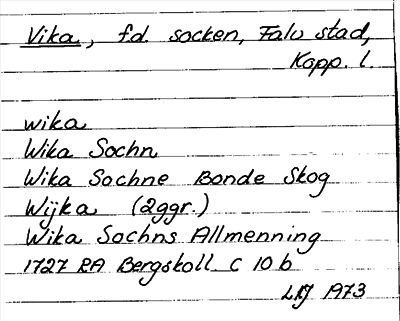 Vika, fd. socken, Falu stad,
Kopp. l.
wika
Wika Sochn
Wika Sochne Bonde Skog
Wijka (2ggr.)
Wika Sochns Allmenning
1727 RA Bergskoll. C 10 b
1973